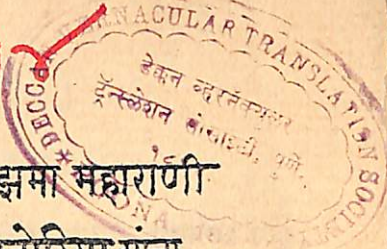 DECCAN VERNACULAR TRANSLATION SOCIETY
डेक्कन व्हरनॅक्युलर
ट्रॅन्स्लेशन सोसाइटी, पुणें.
झमा महाराणी